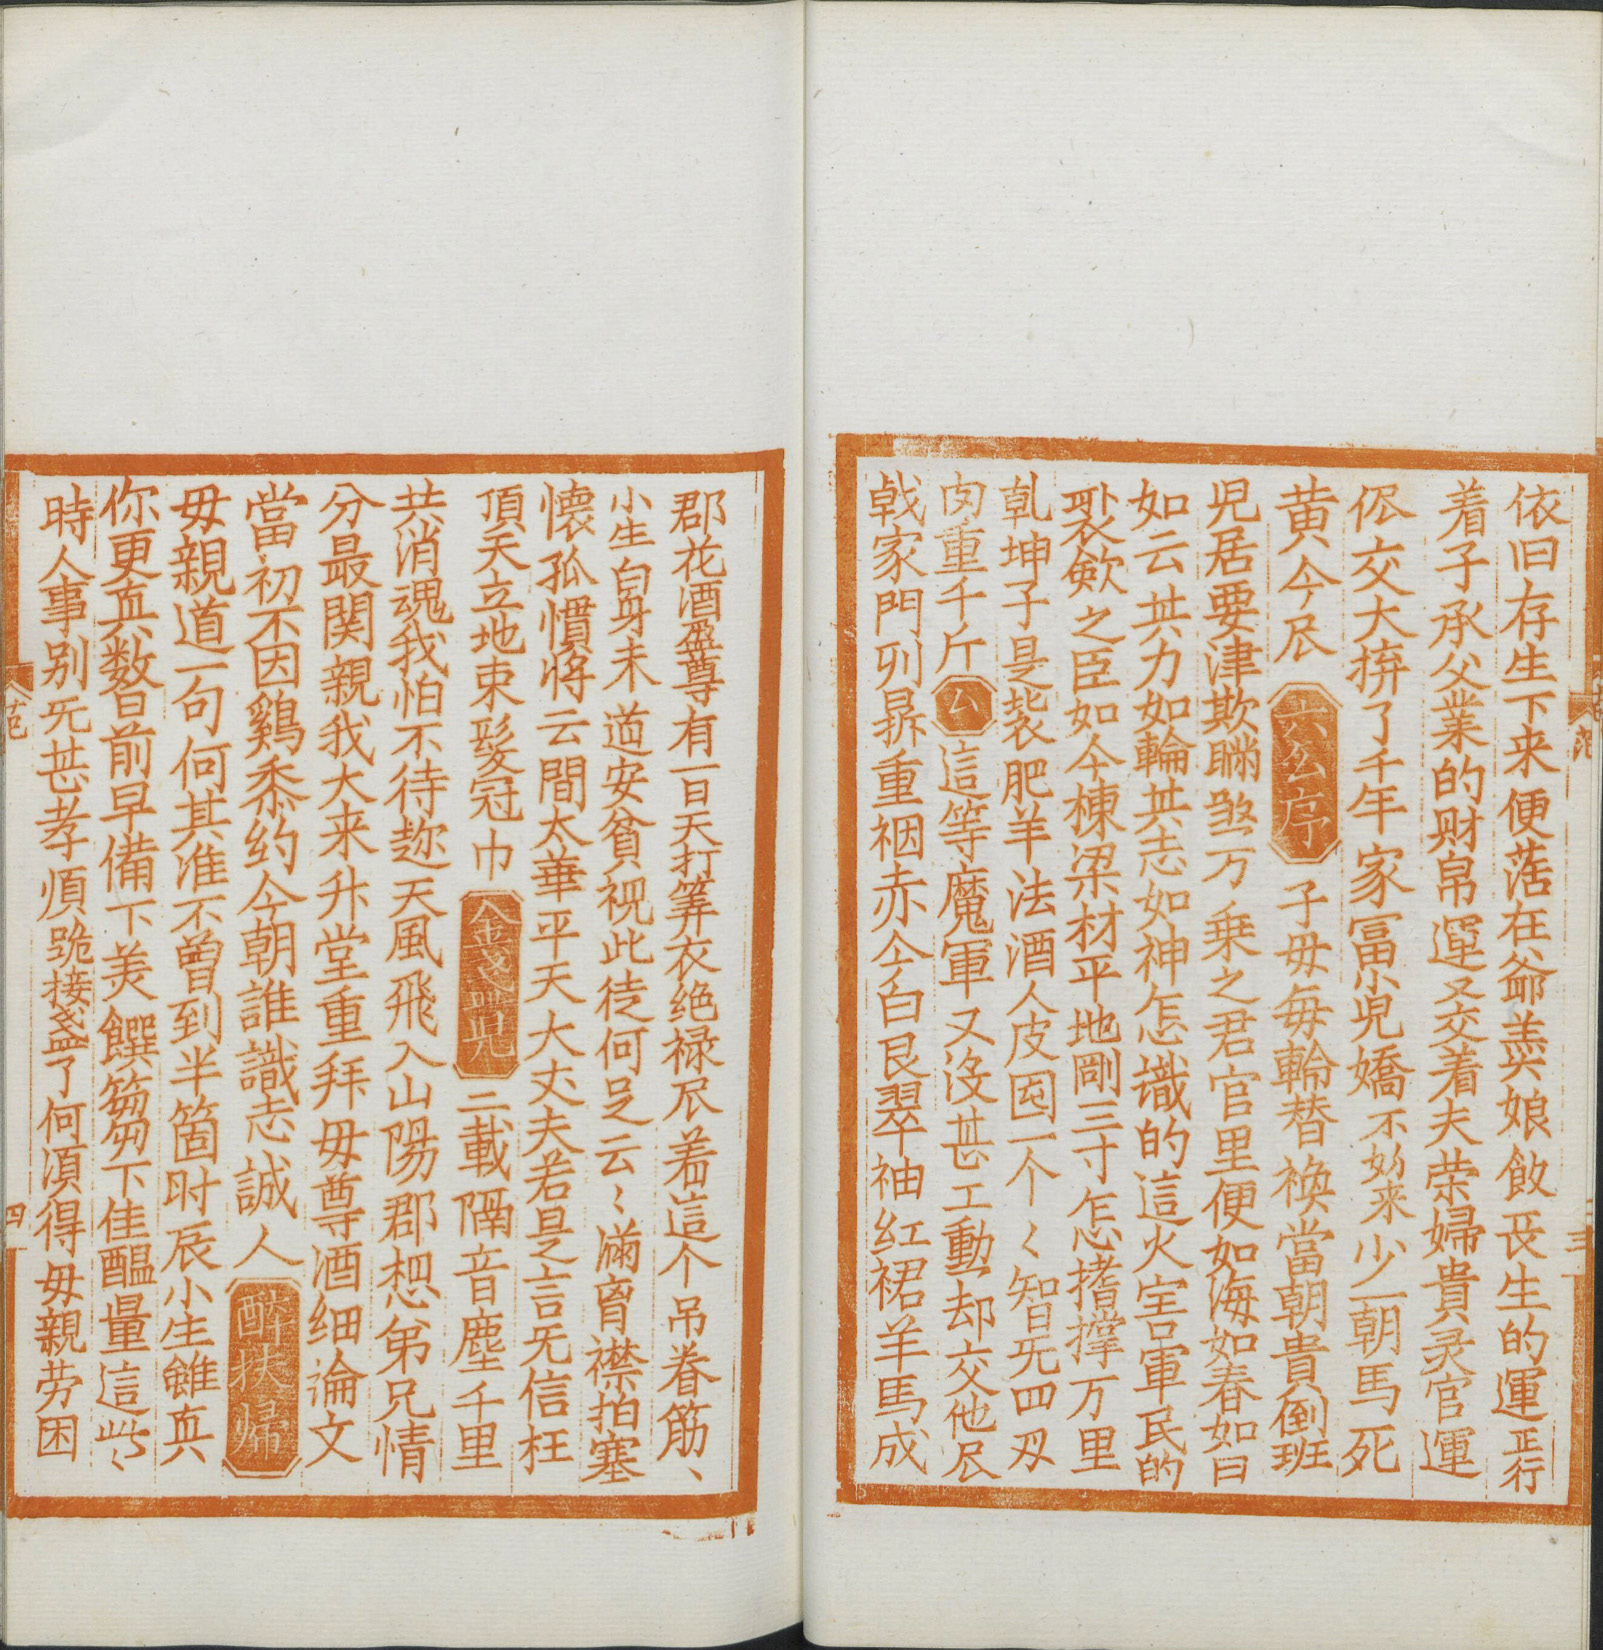 依旧存生下来便落在爺羹娘飲丧生的運正行
着子承父業的财帛運又交着夫荣婦貴灵官運
你交大拚了千年家冨小児嬌不妨来少一朝馬死
黄今㞋六么序子母每輪替换當朝貴倒班
児居要津欺瞒煞万乗之君官里便如海如春如日
如云共力如輪其志如神怎識的這火害軍民的
裂歛之臣如今棟梁材平地剛三寸乍怎撐万里
乹坤子是裝肥羊法酒人皮囤一个〻智旡四刄
肉重千斤么這等魔軍又没甚工動却交他㞋
戟家門列鼎重裀赤今白艮翠袖红裙羊馬成
郡花酒盈尊有一日天打筭衣绝禄㞋着這个吊眷筋、
小生白身未道安貧視此徒何足云〻滿脊襟拍塞
懐孤慣将云間太華平天大丈夫若旦之言旡信枉
頂天立地束髮冠巾金盞児二載隔音塵千里
共消魂我怕不待趂天風飛入山陽郡想弟兄情
分最関親我大来升堂重拜母尊酒细論文
當初不因雞黍约今朝誰識志誠人醉扶歸
母親道一句何其准不曾到半箇时辰小生雖真
你更真数日前早備下羙饌篘刍下佳醖量這些〻
時人事别旡甚孝順跪接盞了何湏得母親劳困
范
三
四